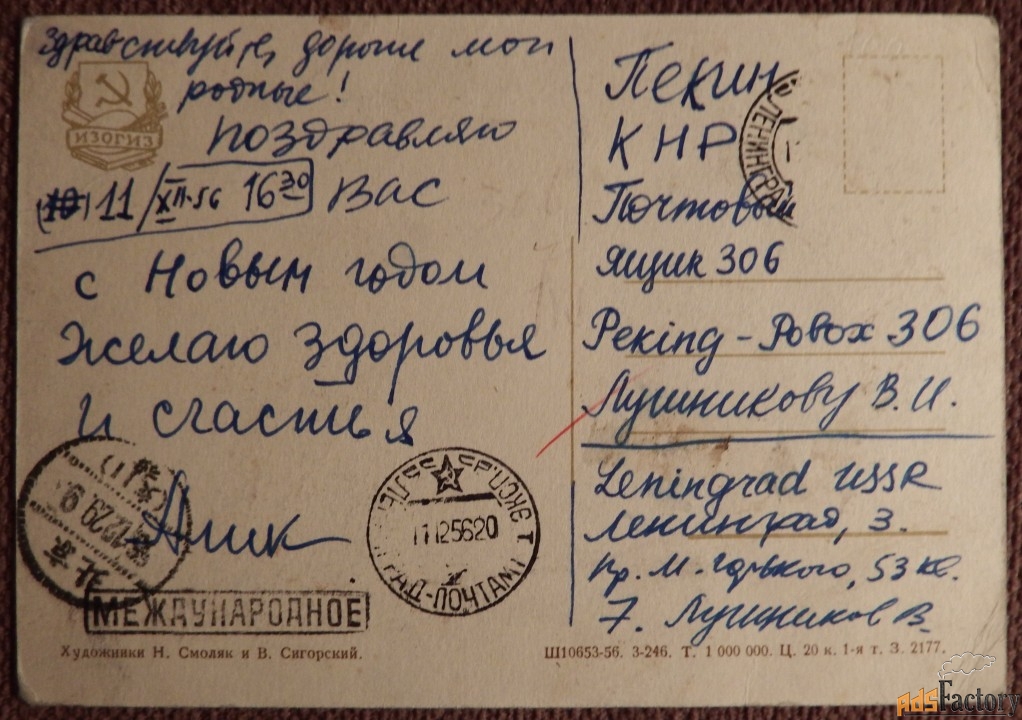 Здравствуйте, дорогие мои
родные!
ИЗОГИЗ
Поздравляю
11/XII-56 16 30 Вас
с Новым годом
Желаю здоровья
и счастья
Алик
МЕЖДУНАРОДНОЕ
17 12 56 20
ПОЧТАМТ
Художники Н. Смоляк и В. Сигорский.
Пекин
КНР
ЛЕНИНГРАД
Почтовый
ящик 306
Peking - Pobox 306
Лушникову В. И.
Leningrad USSR
Ленинград, 3.
пр. М. Горького, 53 кв.
7. Лушников В.
Ш10653-56. 3-246. Т. 1 000 000. Ц. 20 к. 1-я т. З. 2177.
AdsFactory